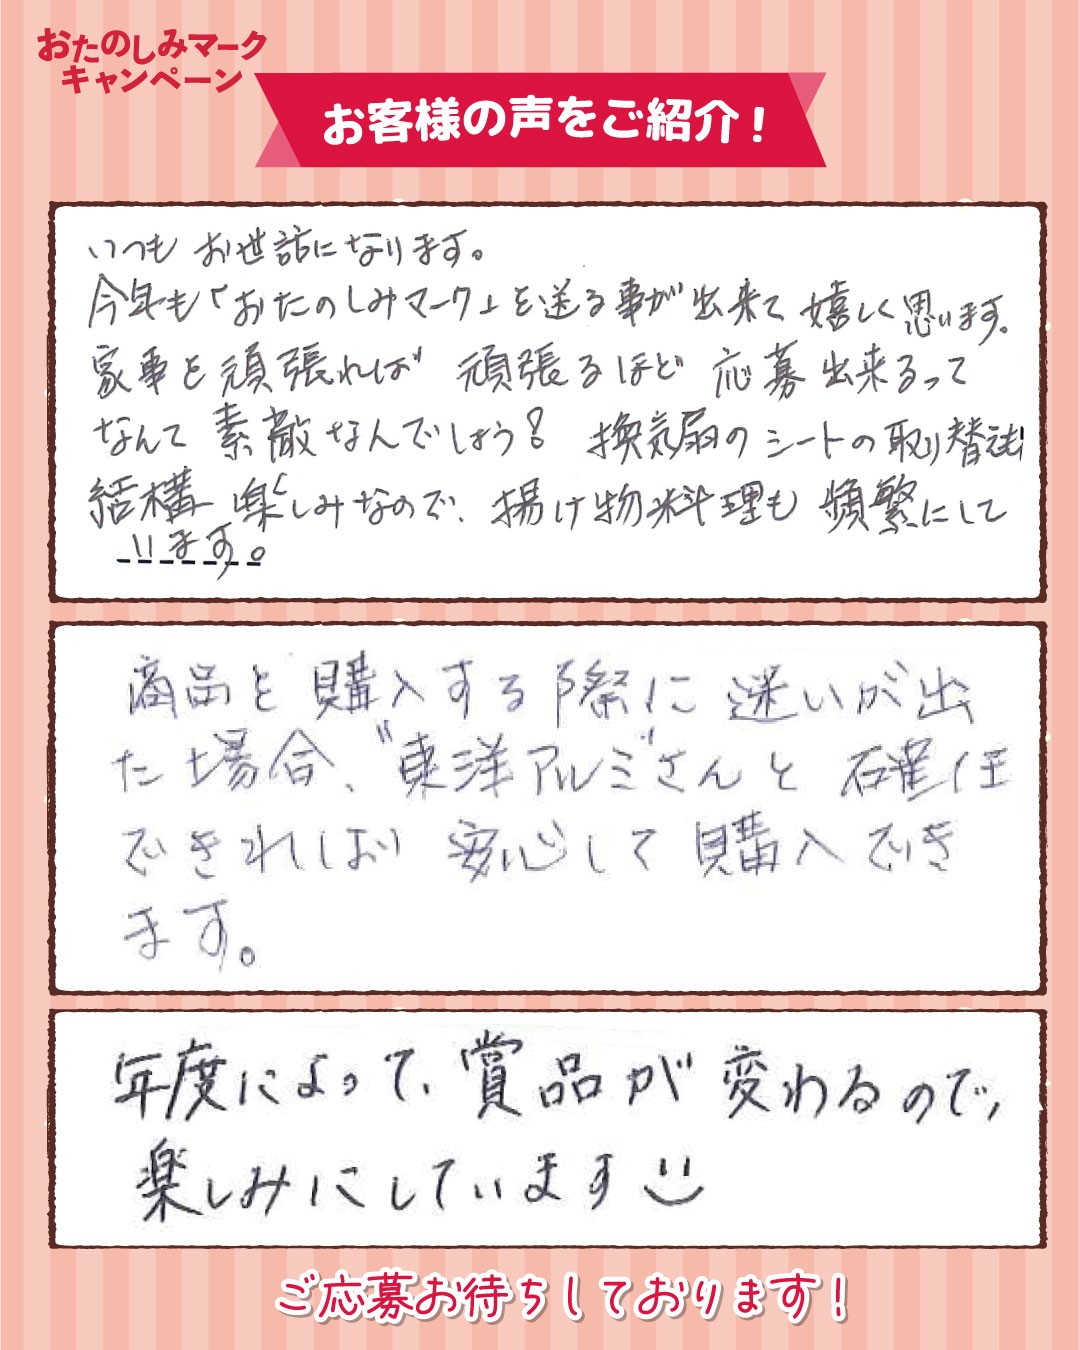 おたのしみマーク
キャンペーン
お客様の声をご紹介！
いつも お世話になります。
今年も「おたのしみマーク」を送る事が出来て 嬉しく思います。
家事を頑張れば 頑張るほど 応募出来るって
なんて素敵なんでしょう？ 換気扇のシートの取り替えも
結構楽しみなので、揚げ物料理も頻繁にして
います。
商品を購入する際に迷いが出
た場合、"東洋アルミ"さんと確任
できれば 安心して購入でき
ます。
年度によって、賞品が変わるので、
楽しみにしています
ご応募お待ちしております！